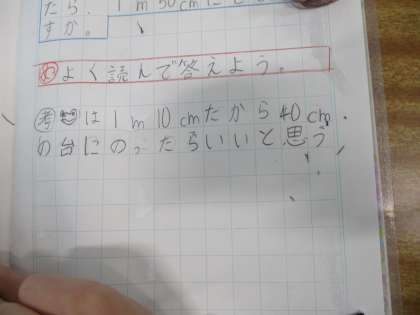 たら、1m50cmに
すか。
め よく読んで答えよう。
考 は1m10cmだから40cm
の台にのったらいいと思う